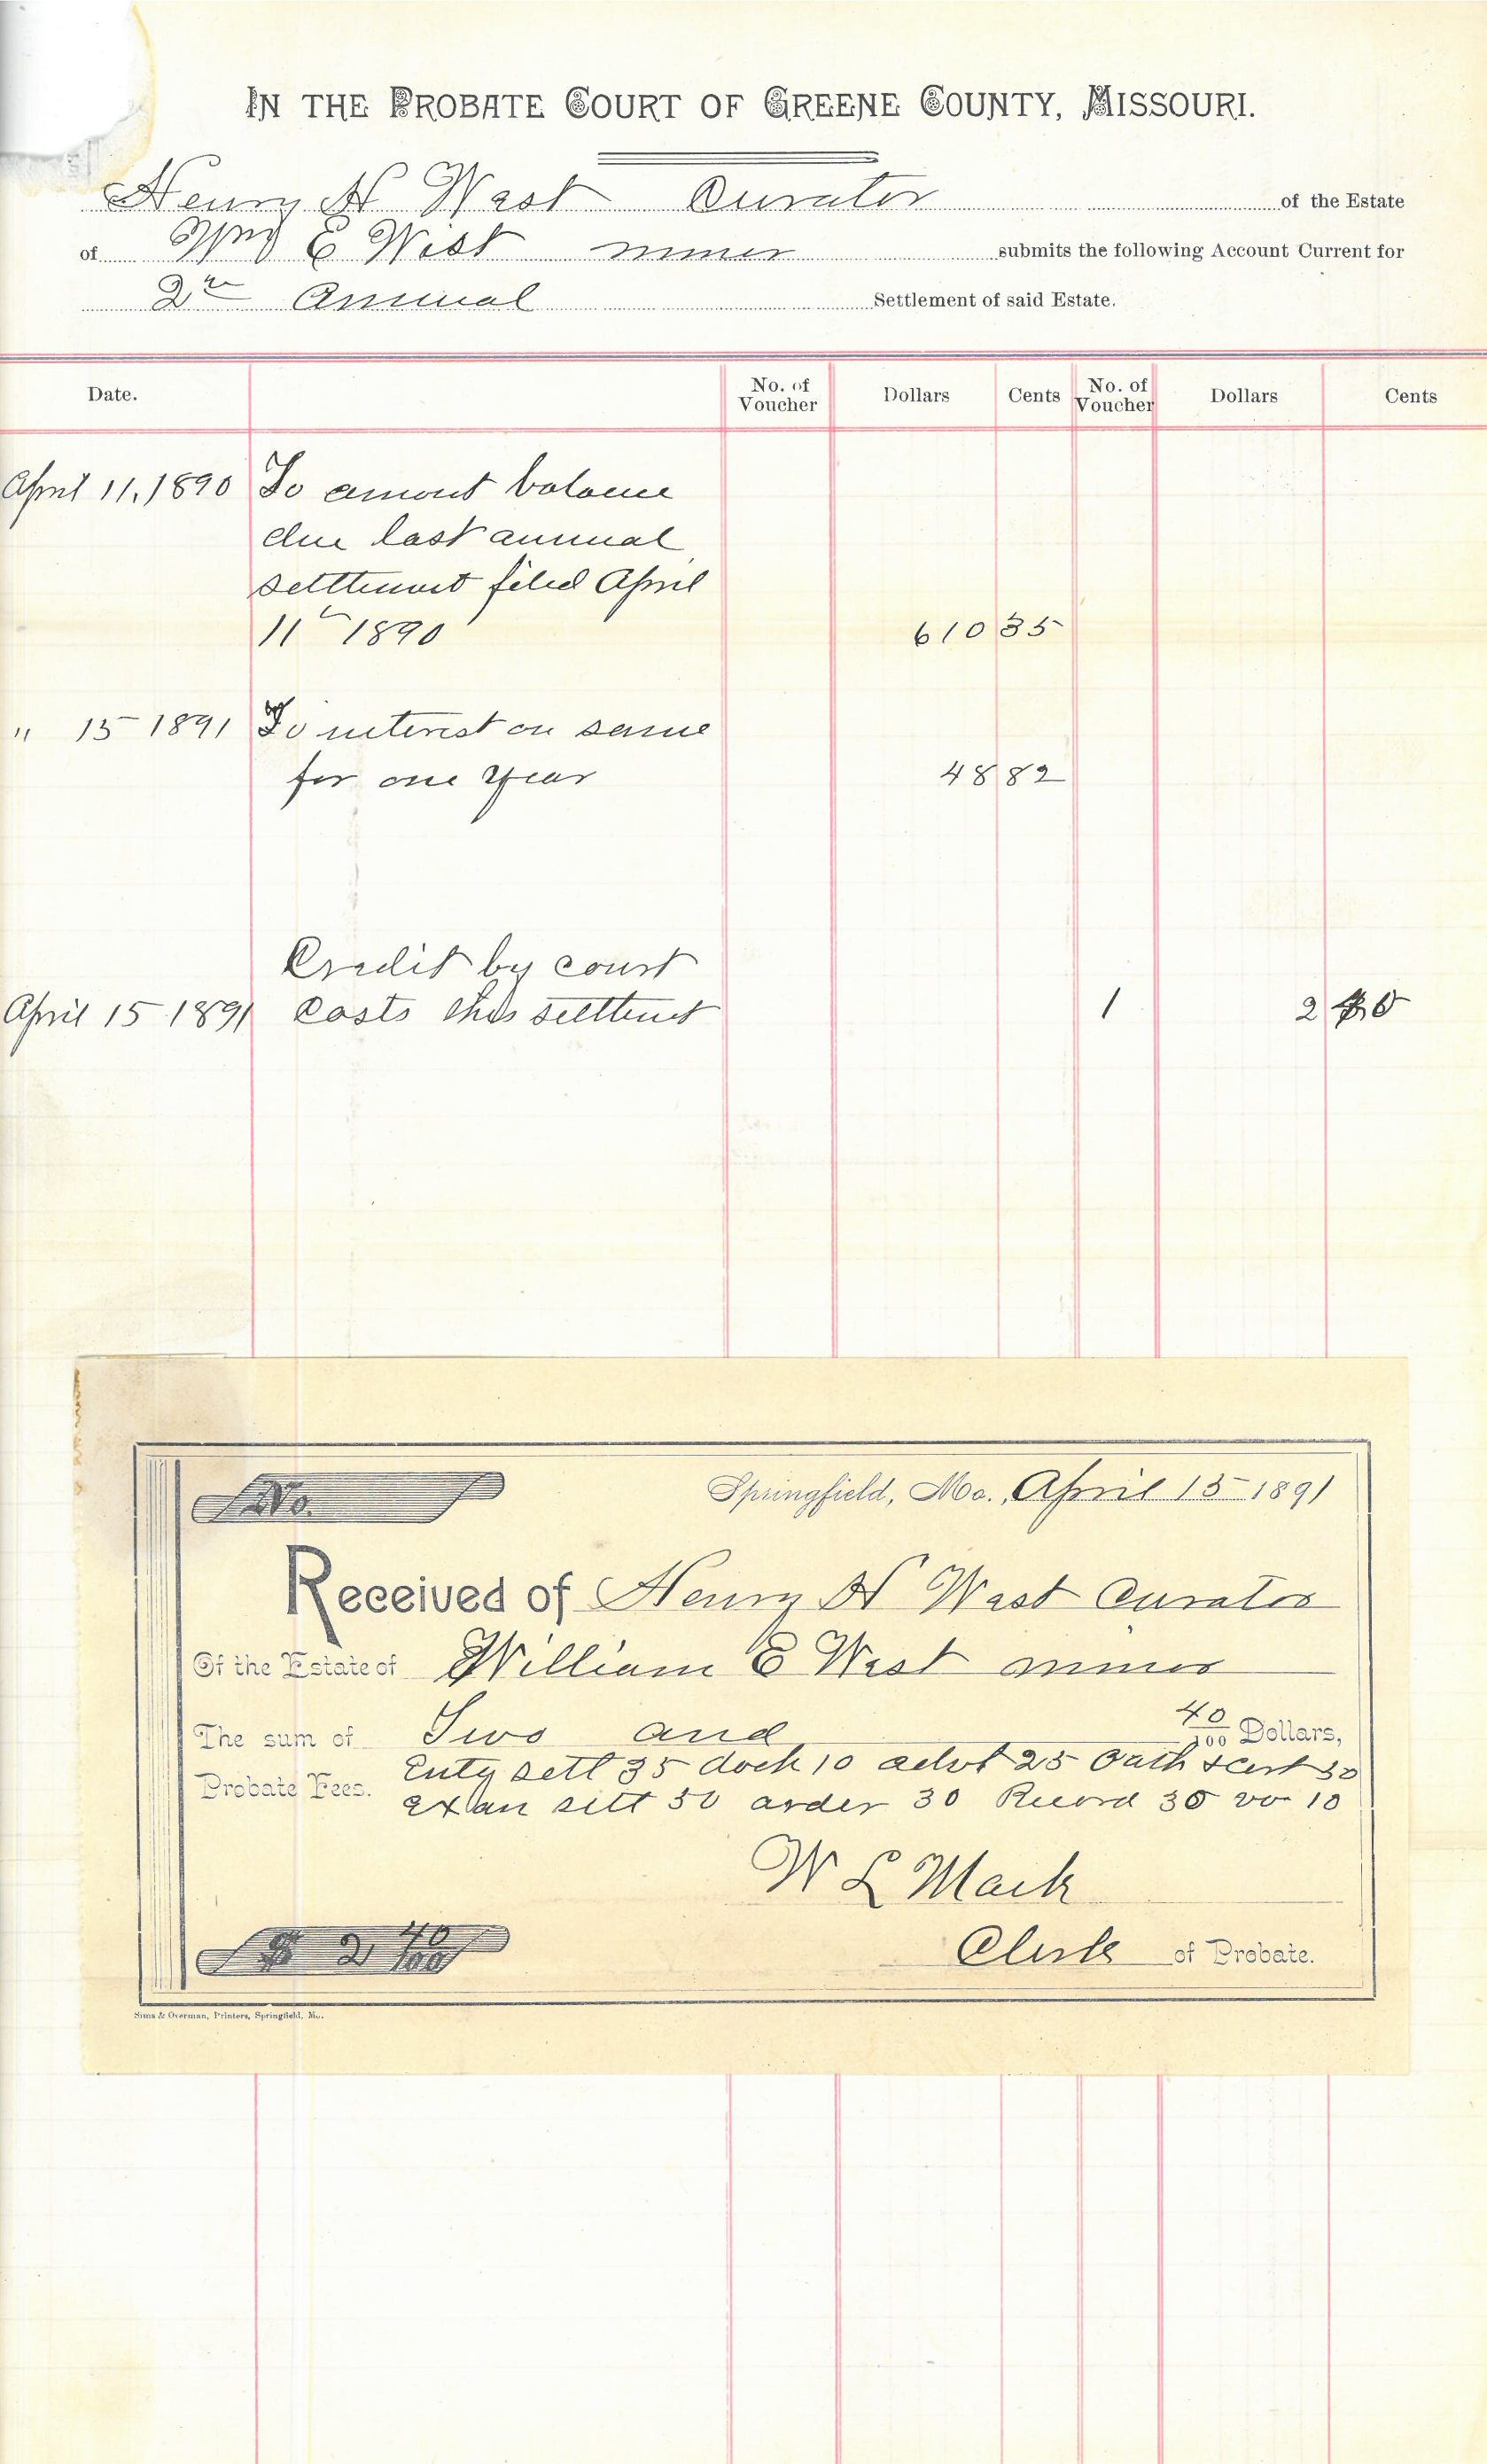 IN THE PROBATE COURT OF GREENE COUNTY, MISSOURI.
Henry N West Curator of the Estate
of Wm E West minor submits the following Account Current for
2nd Annual Settlement of said Estate.
Date. No. of Voucher Dollars Cents No. of Voucher Dollars Cents
April 11, 1890 To amount balance
due last annual
settlement filed April
11th 1890 610 35
" 15 1891 To interest on same
for one year 48 82
Credit by court
April 15 1891 Costs this settlement 1 2 40
No. Springfield, Mo., April 15 1891
Received of Henry N West Curator
Of the Estate of William E West minor
The sum of Two and 40/100 Dollars,
Probate Fees. Enty sett 35 dock 10 advt 25 Oath & Cert 50
exan sett 50 order 30 Record 30 vo 10
W L Mack
$ 2 40/100 Clerk of Probate.
Sims & Overman, Printers, Springfield, Mo.